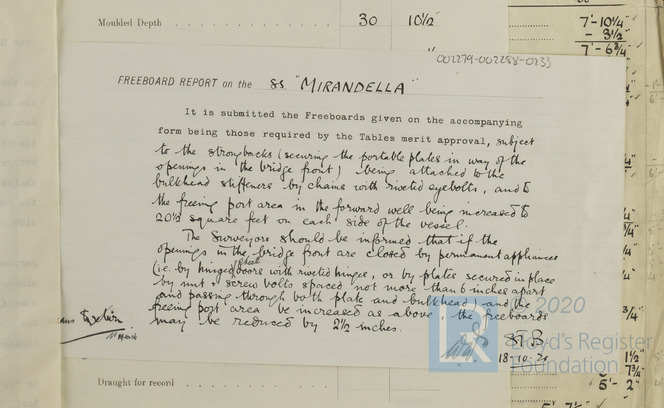 Moulded Depth . . . . . . 30 10½
7'-10¼"
- 3½"
7'-6¾"
002279-002288-0233
FREEBOARD REPORT on the SS "MIRANDELLA"
It is submitted the Freeboards given on the accompanying
form being those required by the Tables merit approval, subject
to the strongbacks (securing the portable plates in way of the
openings in the bridge front) being attached to the
bulkhead stiffeners by chains with riveted eyebolts, and to
the freeing port area in the forward well being increased to
20½ square feet on each side of the vessel.
The Surveyors should be informed that if the
openings in the bridge front are closed by permanent appliances
(i.e. by hinged steel doors with riveted hinges, or by plates secured in place
by nut & screw bolts spaced not more than 6 inches apart
and passing through both plate and bulkhead) and the
freeing port area be increased as above, the freeboards
may be reduced by 2½ inches.
18-10-20
© 2020
Lloyd's Register
Foundation
Draught for record . . . . . .
¾"
1½"
7¾"
5'- 2"